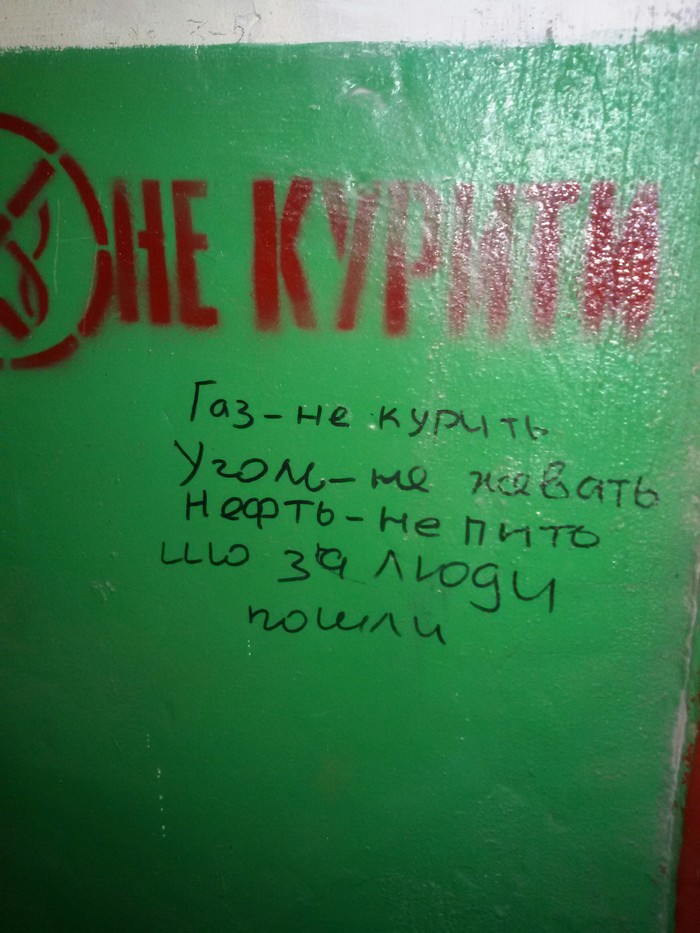 НЕ КУРИТИ
Газ-не курить
Уголь-не жевать
Нефть-не пить
шо за люди
пошли